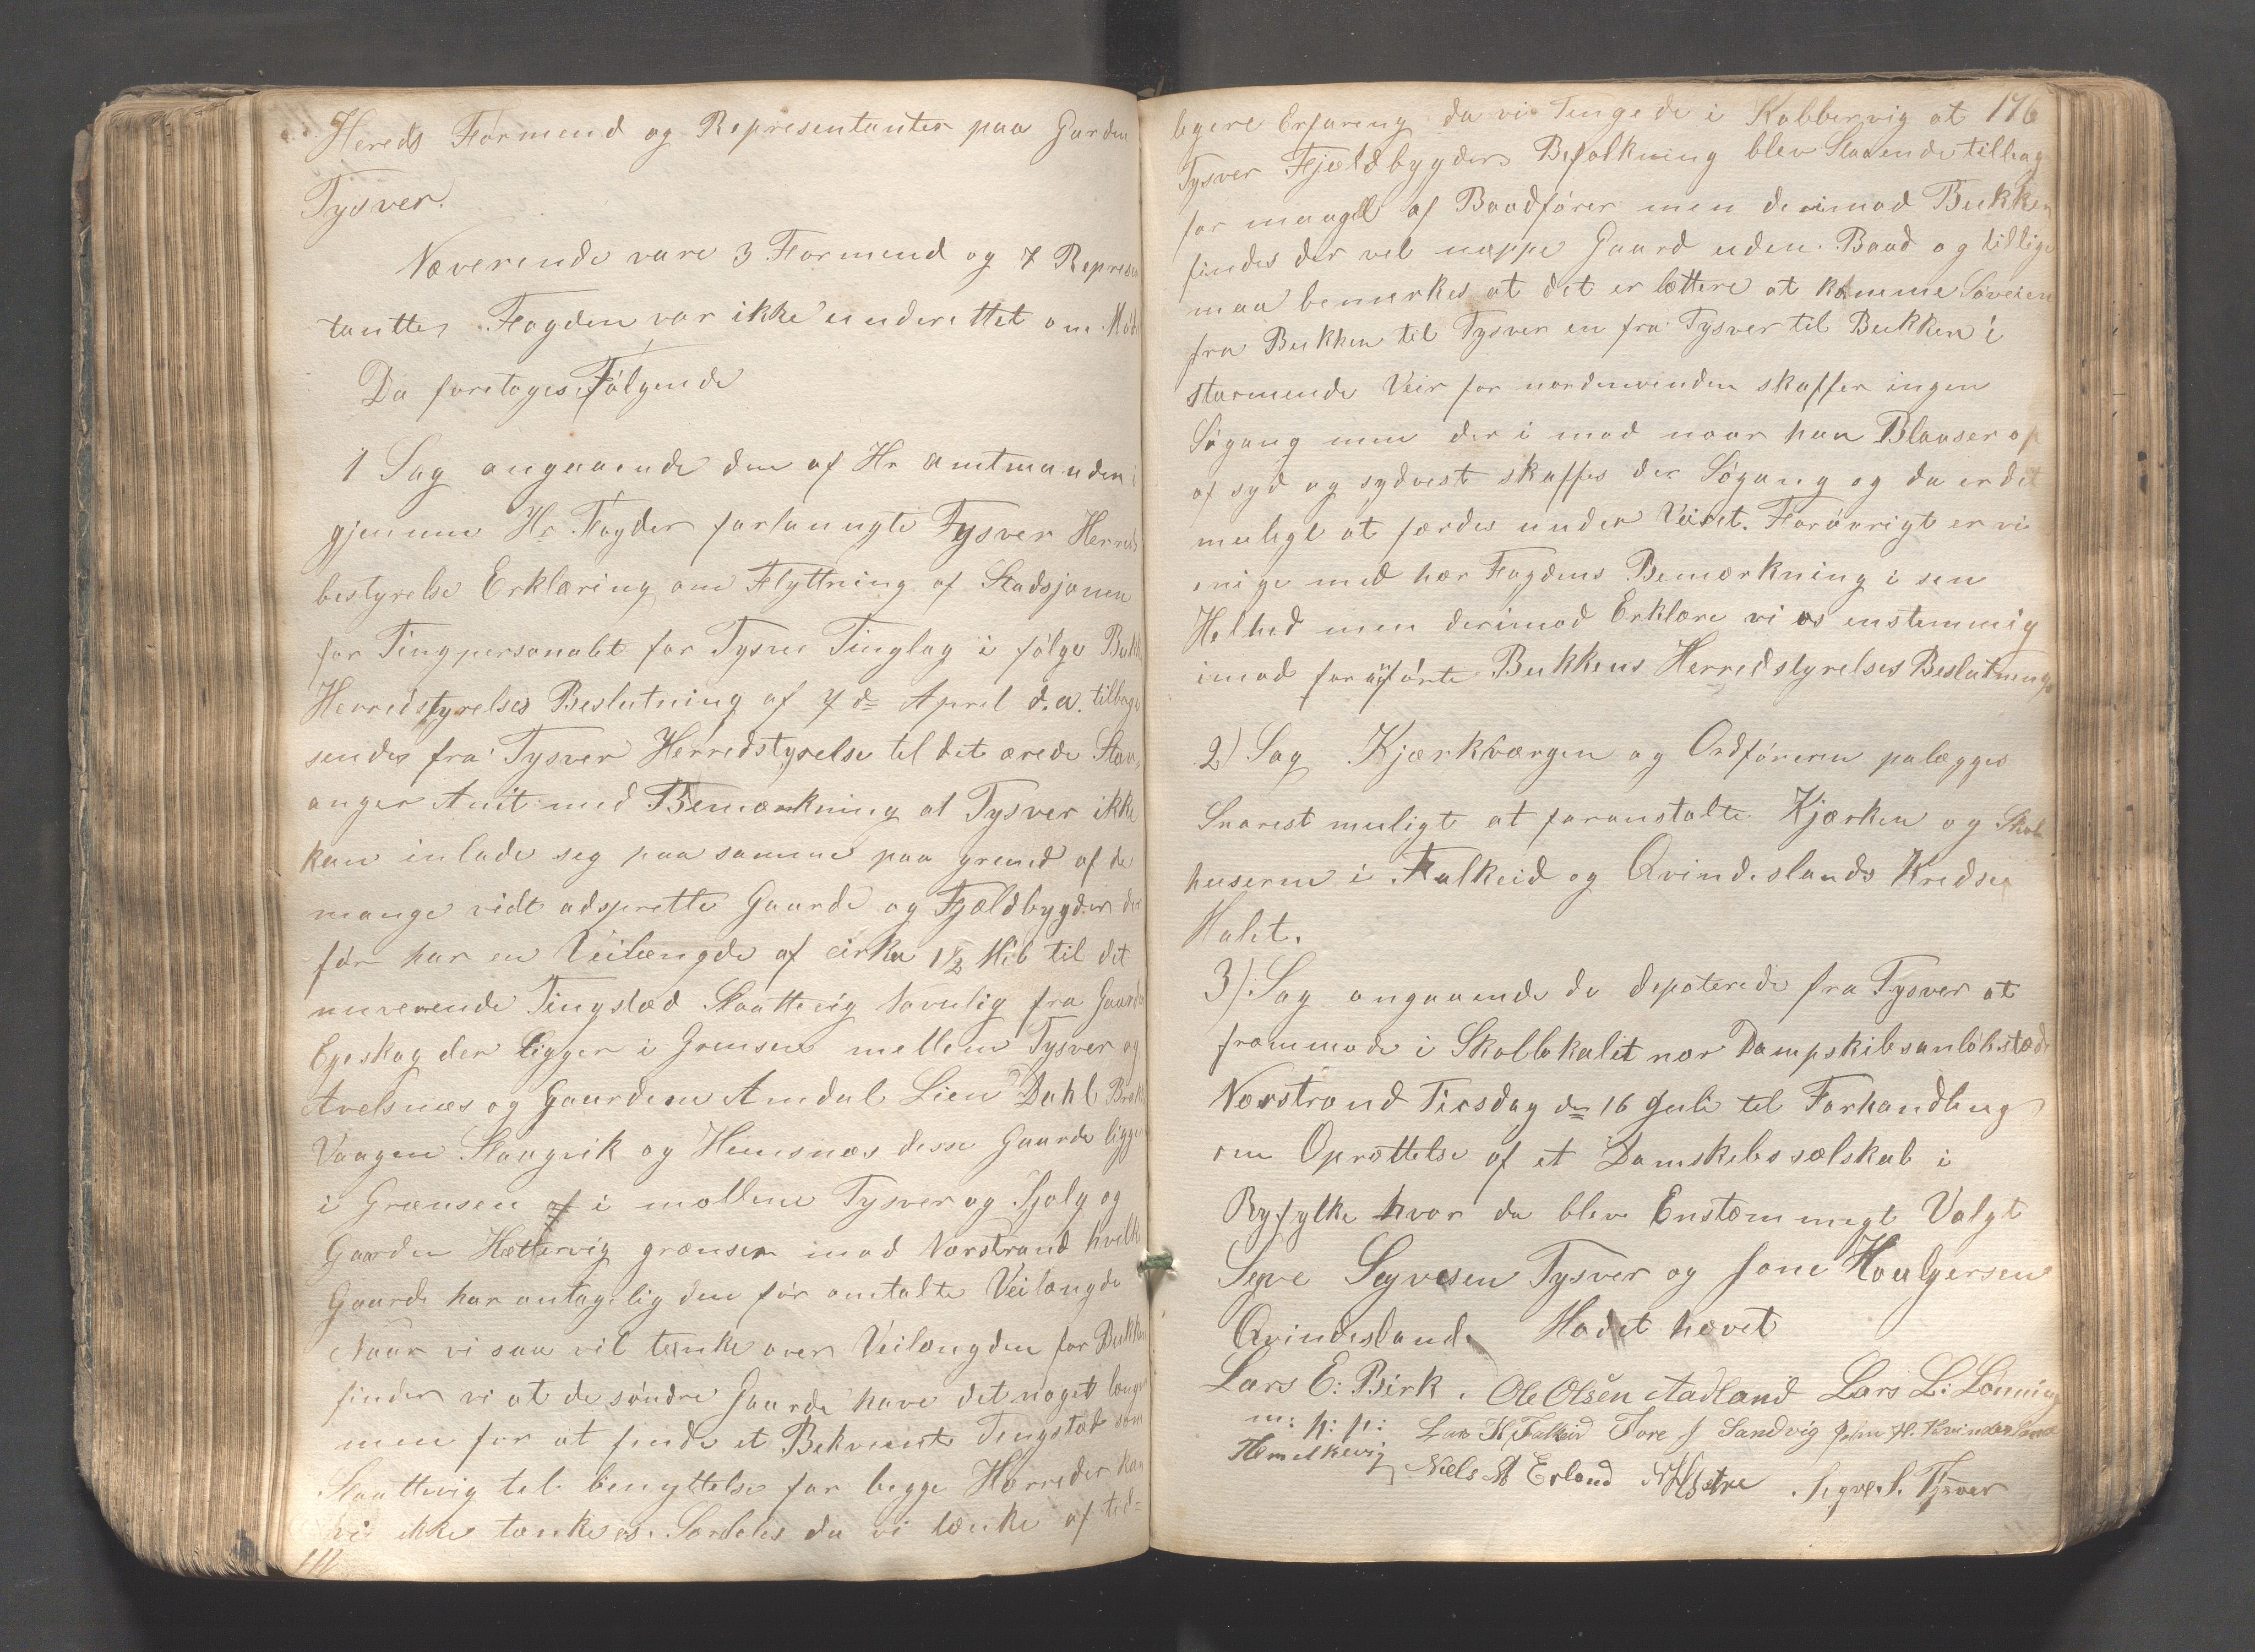 Hereds Formend og Representanter paa Garden
Tysver.
Nærverende vare 3 Formend og 7 Represen
tantter Fogden var ikke underettet om Mød
Da foretoges Følgende
1 Sag angaaende den af Hr Amtmanden i
gjennem Hr Fogden forlanngte Tysver Herreds
bestyrelse Erklæring om Flyttning af Stadsjonen
for Tingpersonalet for Tysver Tinglag i følge Bukk
Herredstyrelses Beslutning af 7de April d.a. tilbage
sendes fra Tysver Herredstyrelse til det ærede Stav
anger Amt med Bemærkning at Tysver ikke
kan inlade seg paa samme paa grund af de
mange vidt adsprette Gaarde og Fjældbygder der
før har en Veilængde af cirka 1½ Mil til det
nuverende Tingstæd Slaattevig Navnlig fra Gaarden
Egeskog der ligger i Grensen mellem Tysver og
Avelsnæs og Gaardene Amdal Lien Dahl Brek
Vaagen Slaagvik og Himsnæs desse Gaarde ligger
i Grænsen af i mellem Tysver og Sjoly og
Gaarden Hættervig grænser imod Nærstrand hvilke
Gaarde har antagelig den før omtalte Veilængde
Naar vi saa vil tænke over Veilængden for Bukken
finder vi at de søndre Gaarde have det noget længer
men for at finde et Bekvemt Tingstæd som
Slaattevig til binyttelse for begge Herreder kan
vi ikke tænke os. Særdeles da vi tænke af tid=
ligere Erfaring da vi Tingede i Kobbervig at 176
Tysver Fjældbygders Befolkning blev Staaende tilbag
for maagel af Baadfører men derimod Bukken
findes der vel neppe Gaard uden Baad og tillige
maa bemerkes at det er lættere at komme Søveien
fra Bukken til Tysver en fra Tysver til Bukken i
stormende Veir for nordenvinden skaffer ingen
Søgang men der i mod naar han Blaaser op
af syd og sydvest skaffes der Søgang og da er det
muligt at færdes under Veiret. Forøvrigt er vi
enige med hær Fogdens Bemærkning i sen
Helhed men derimod Erklære vi os enstemmig
imod foranførte Bukkens Herredstyrelses Beslutning
2) Sag Kjærkværgen og Ordføreren palægges
Snarest muligt at foranstalte Kjærken og Skole
huserne i Falkeid og Qvindeslands Kredse
Malet.
3) Sag angaaende de depoterede fra Tysver at
frammøde i Skollokalet nær Dampskibsanløbstæde
Nærstrand Tirsdag den 16 Juli til Forhandling
om Oprættelse af et Damskibssælskab i
Ryfylke hvor da blev Enstæmmigt Valgt
Segve Segvesen Tysver og Jone Houlgersen
Qvindesland. Mødet hævet
Lars E: Birk . Ole Olsen Aadland Lars L: Lønning
m: p: p: Lars H Falkeid Tore J Sandvig John H. Kvindesland
Hemelkevig Niels Erland . Segve. S. Tysver